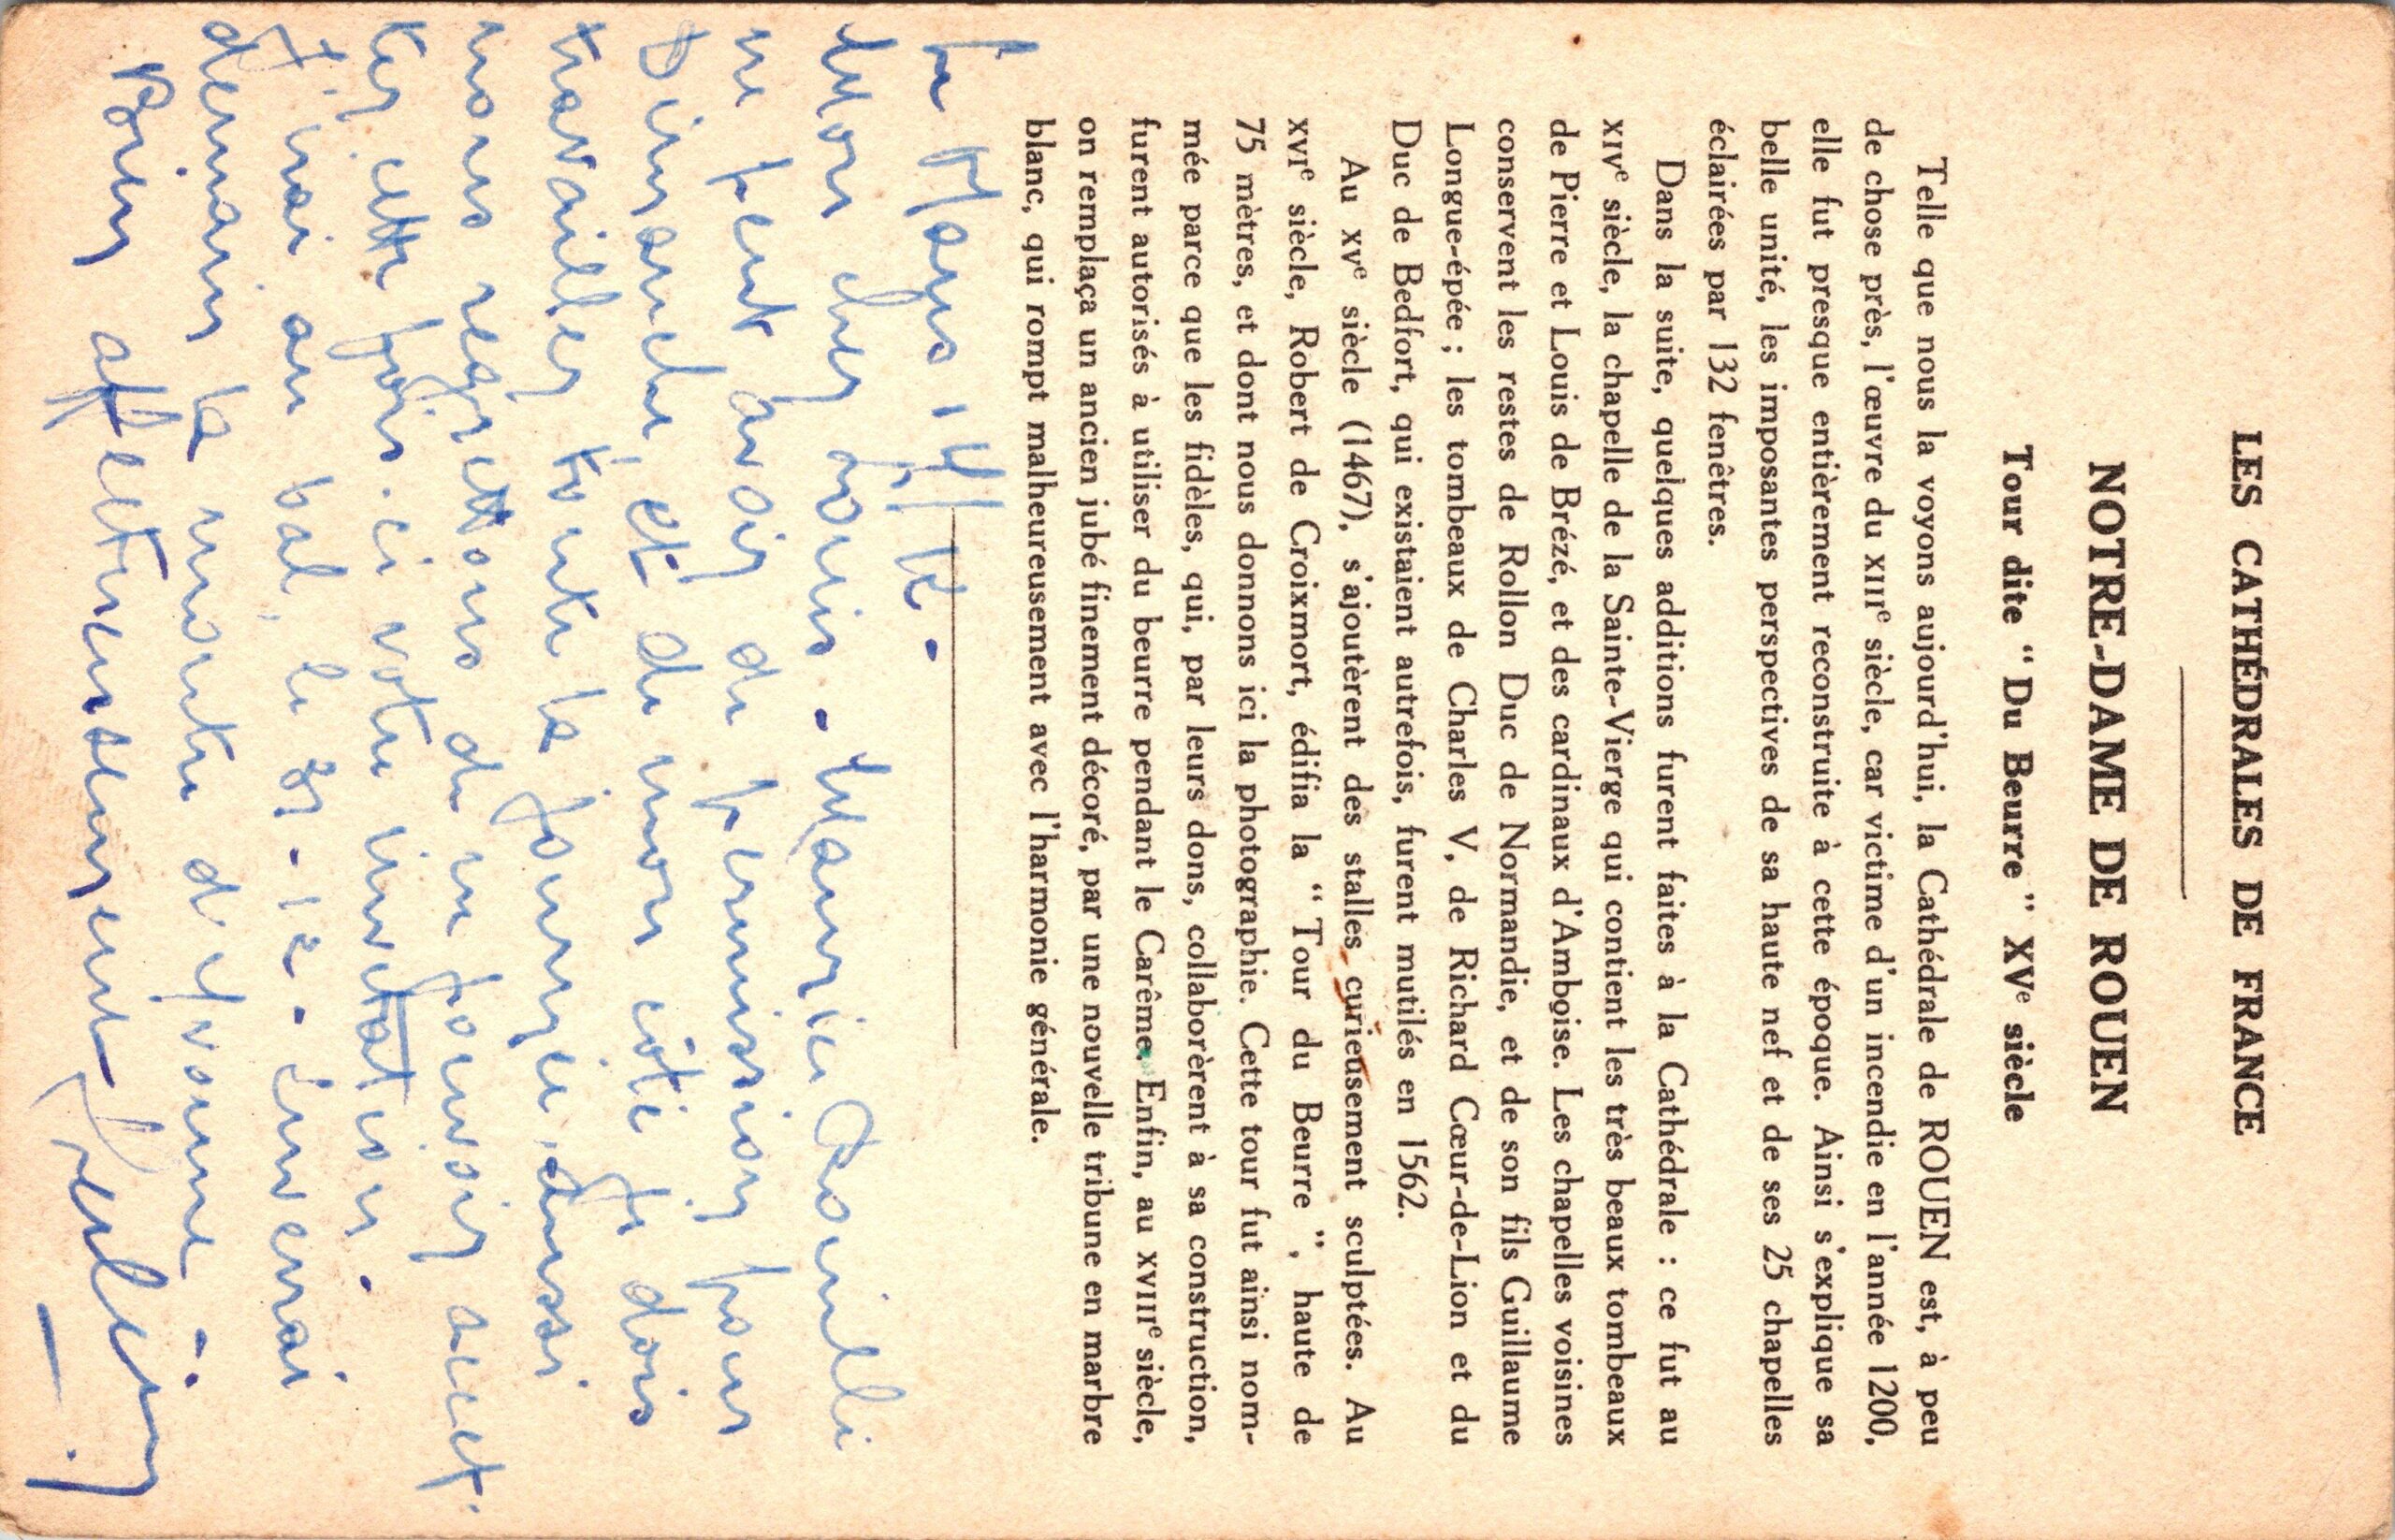 LES CATHÉDRALES DE FRANCE
NOTRE-DAME DE ROUEN
Tour dite “ Du Beurre ” XVe siècle
Telle que nous la voyons aujourd'hui, la Cathédrale de ROUEN est, à peu
de chose près, l'œuvre du XIIIe siècle, car victime d'un incendie en l'année 1200,
elle fut presque entièrement reconstruite à cette époque. Ainsi s'explique sa
belle unité, les imposantes perspectives de sa haute nef et de ses 25 chapelles
éclairées par 132 fenêtres.
Dans la suite, quelques additions furent faites à la Cathédrale : ce fut au
XIVe siècle, la chapelle de la Sainte-Vierge qui contient les très beaux tombeaux
de Pierre et Louis de Brézé, et des cardinaux d'Amboise. Les chapelles voisines
conservent les restes de Rollon Duc de Normandie, et de son fils Guillaume
Longue-épée ; les tombeaux de Charles V, de Richard Cœur-de-Lion et du
Duc de Bedfort, qui existaient autrefois, furent mutilés en 1562.
Au XVe siècle (1467), s'ajoutèrent des stalles curieusement sculptées. Au
XVIe siècle, Robert de Croixmort, édifia la “ Tour du Beurre ”, haute de
75 mètres, et dont nous donnons ici la photographie. Cette tour fut ainsi nom-
mée parce que les fidèles, qui, par leurs dons, collaborèrent à sa construction,
furent autorisés à utiliser du beurre pendant le Carême. Enfin, au XVIIIe siècle,
on remplaça un ancien jubé finement décoré, par une nouvelle tribune en marbre
blanc, qui rompt malheureusement avec l'harmonie générale.
Le Mans
Mon cher Louis. Maurice
ne peut avoir de permission pour
Dimanche, et de mon côté je dois
travailler toute la journée, aussi
nous regrettons de ne pouvoir accep-
ter cette fois-ci votre invitation.
J'irai au bal, le enverrai
demain la montre d'Yvonne.
Bien affectueusement